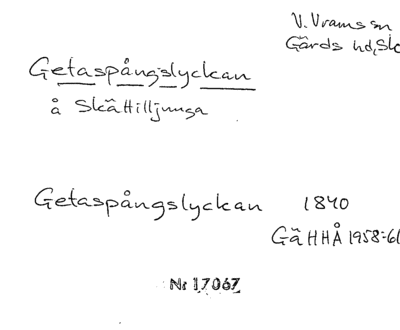 V. Vrams sn
Gärds hd, Skå
Getaspångslyckan
å Skättilljunga
Getaspångslyckan 1840
Gä HHÅ 1958-61
Nr 17067